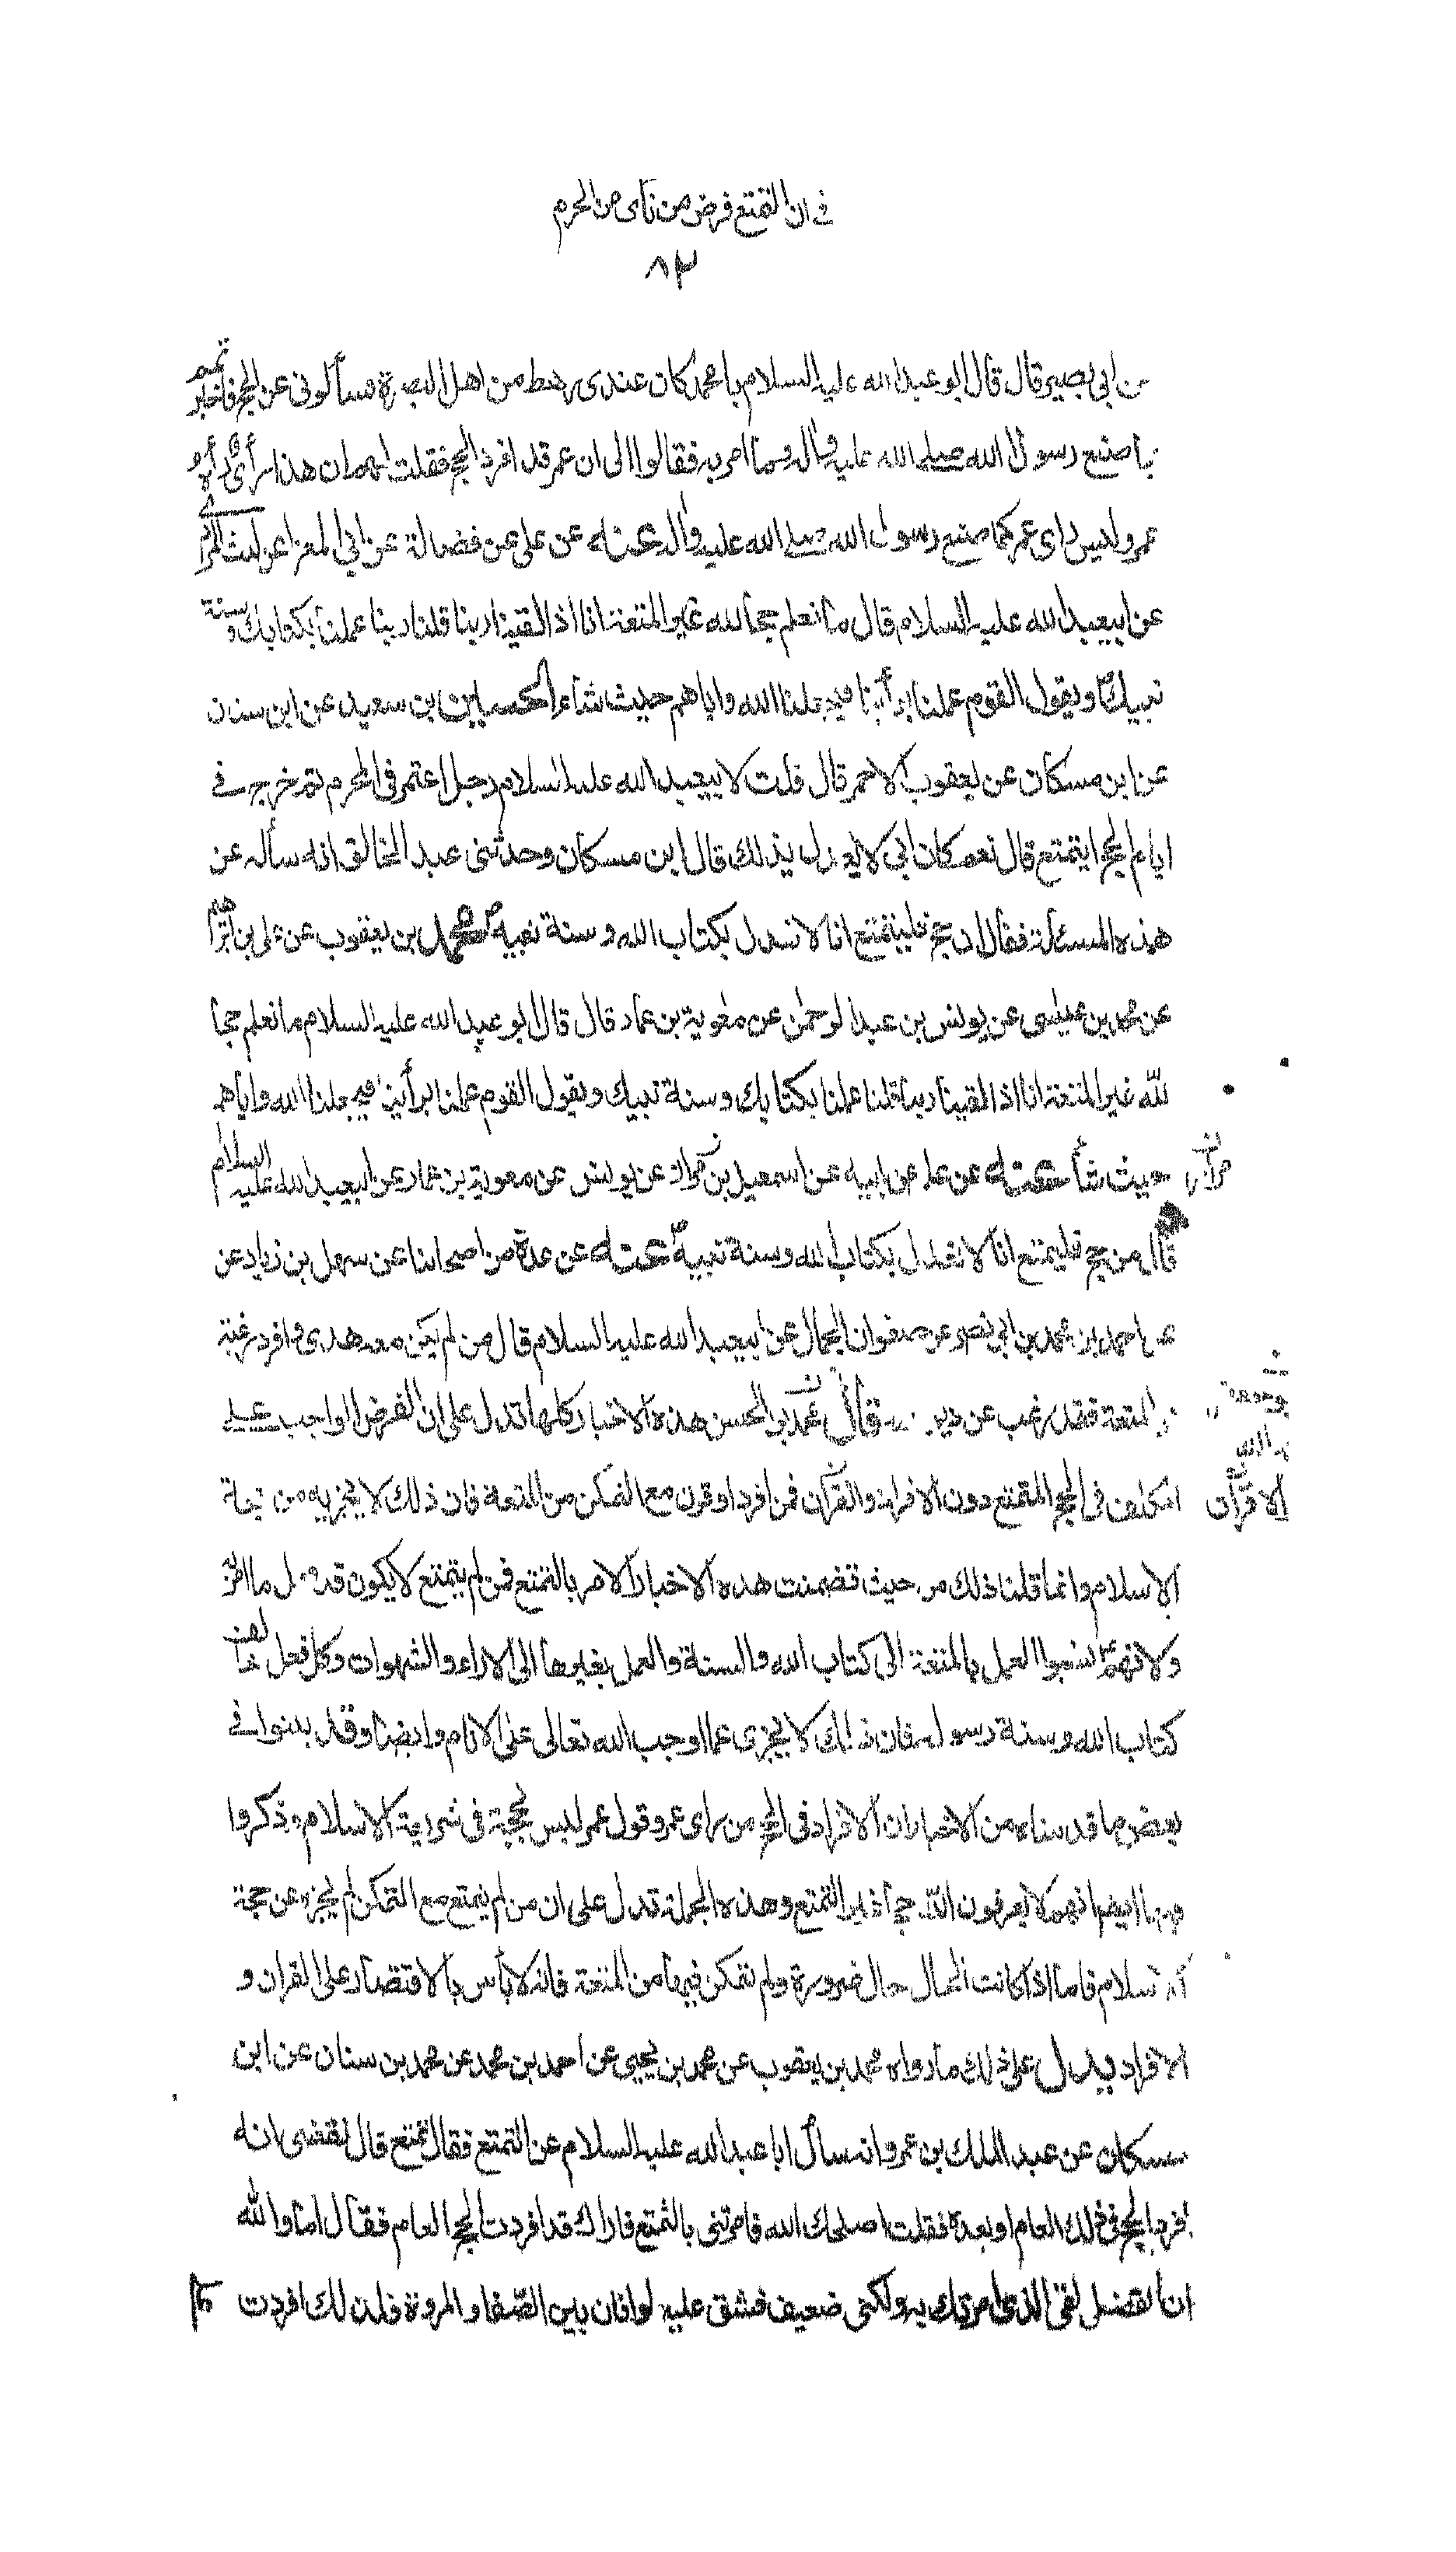 في ان التمتع فرض من نأى من الحرم
٨٢
عن ابي بصير قال قال ابو عبد الله عليه السلام يا با محمد كان عندى رهط من اهل البصرة سألوني عن الحج فاخبرتهم
بما صنع رسول الله صلى الله عليه وآله وبما امر به فقالوا لى ان عمر قد افرد الحج فقلت لهم ان هذا رأى رأه
عمر وليس راى عمر كما صنع رسول الله صلى الله عليه وآله عنه عن على عن فضالة عن ابي المعزا عن ليث المرادي
عن ابيعبد الله عليه السلام قال ما نعلم حجا لله غير المتعة انا اذا لقينا ربنا قلنا ربنا عملنا بكتابك وسنة
نبيك ويقول القوم عملنا برأينا فيجعلنا الله واياهم حيث شاء الحسين بن سعيد عن ابن سنان
عن ابن مسكان عن يعقوب الاحمر قال قلت لابيعبد الله عليه السلام رجل اعتمر في المحرم ثم خرج في
ايام الحج ايتمتع قال نعم كان ابي لا يعدل بذلك قال ابن مسكان وحدثنى عبد الخالق انه سأله عن
هذه المسئلة فقال ان حج فليتمتع انا لا نعدل بكتاب الله وسنة نبيه محمد بن يعقوب عن على بن ابراهيم
عن محمد بن عيسى عن يونس بن عبد الرحمن عن معوية بن عمار قال قال ابو عبد الله عليه السلام ما نعلم حجا
لله غير المتعة انا اذا لقينا ربنا قلنا عملنا بكتابك وسنة نبيك ويقول القوم عملنا برأينا فيجعلنا الله واياهم
حيث شأ عنه عن على عن ابيه عن اسمعيل بن مرار عن يونس عن معوية بن عمار عن ابيعبد الله عليه السلام
مرار
قال من حج فليتمتع انا لا نعدل بكتاب الله وسنة نبيه عنه عن عدة من اصحابنا عن سهل بن زياد عن
احمد بن محمد بن ابي نصر عن صفوان الجمال عن ابيعبد الله عليه السلام قال من لم يكن معه هدى وافرد رغبة
عن المتعة فقد رغب عن دين الله قال محمد بن الحسن هذه الاخبار كلها تدل على ان الفرض الواجب على
المكلف في الحج التمتع دون الافراد والقران فمن افرد او قرن مع التمكن من المتعة فان ذلك لا يجزيه من حجة
الاقران
الاسلام وانما قلنا ذلك من حيث تضمنت هذه الاخبار الامر بالتمتع فمن لم يتمتع لا يكون قد فعل ما امر به
ولانهم نسبوا العمل بالمتعة الى كتاب الله والسنة والعمل بغيرها الى الاراء والشهوات وكل فعل خالف
كتاب الله وسنة رسوله فان ذلك لا يجزى عما اوجب الله تعالى على الانام وايضا وقد بينوا في
بعض ما قدمناه من الاخبار ان الافراد في الحج من راى عمر وقول عمر ليس بحجة في شريعة الاسلام وذكروا
فيها ايضا انهم لا يعرفون لله حجا غير التمتع وهذه الجملة تدل على ان من لم يتمتع مع التمكن لم يجزه عن حجة
الاسلام فاما اذا كانت الحال حال ضرورة ولم يتمكن فيها من المتعة فانه لا بأس بالاقتصار على القران و
الافراد يدل على ذلك ما رواه محمد بن يعقوب عن محمد بن يحيى عن احمد بن محمد عن محمد بن سنان عن ابن
مسكان عن عبد الملك بن عمرو انه سأل ابا عبد الله عليه السلام عن التمتع فقال تمتع قال فقضى انه
افرد الحج في ذلك العام او بعده فقلت اصلحك الله فامرتنى بالتمتع فاراك قد افردت الحج العام فقال اما والله
ان الفضل لفى الذى امرتك به ولكنى ضعيف فشق عليه لوافان بين الصفا والمروة فلذلك افردت